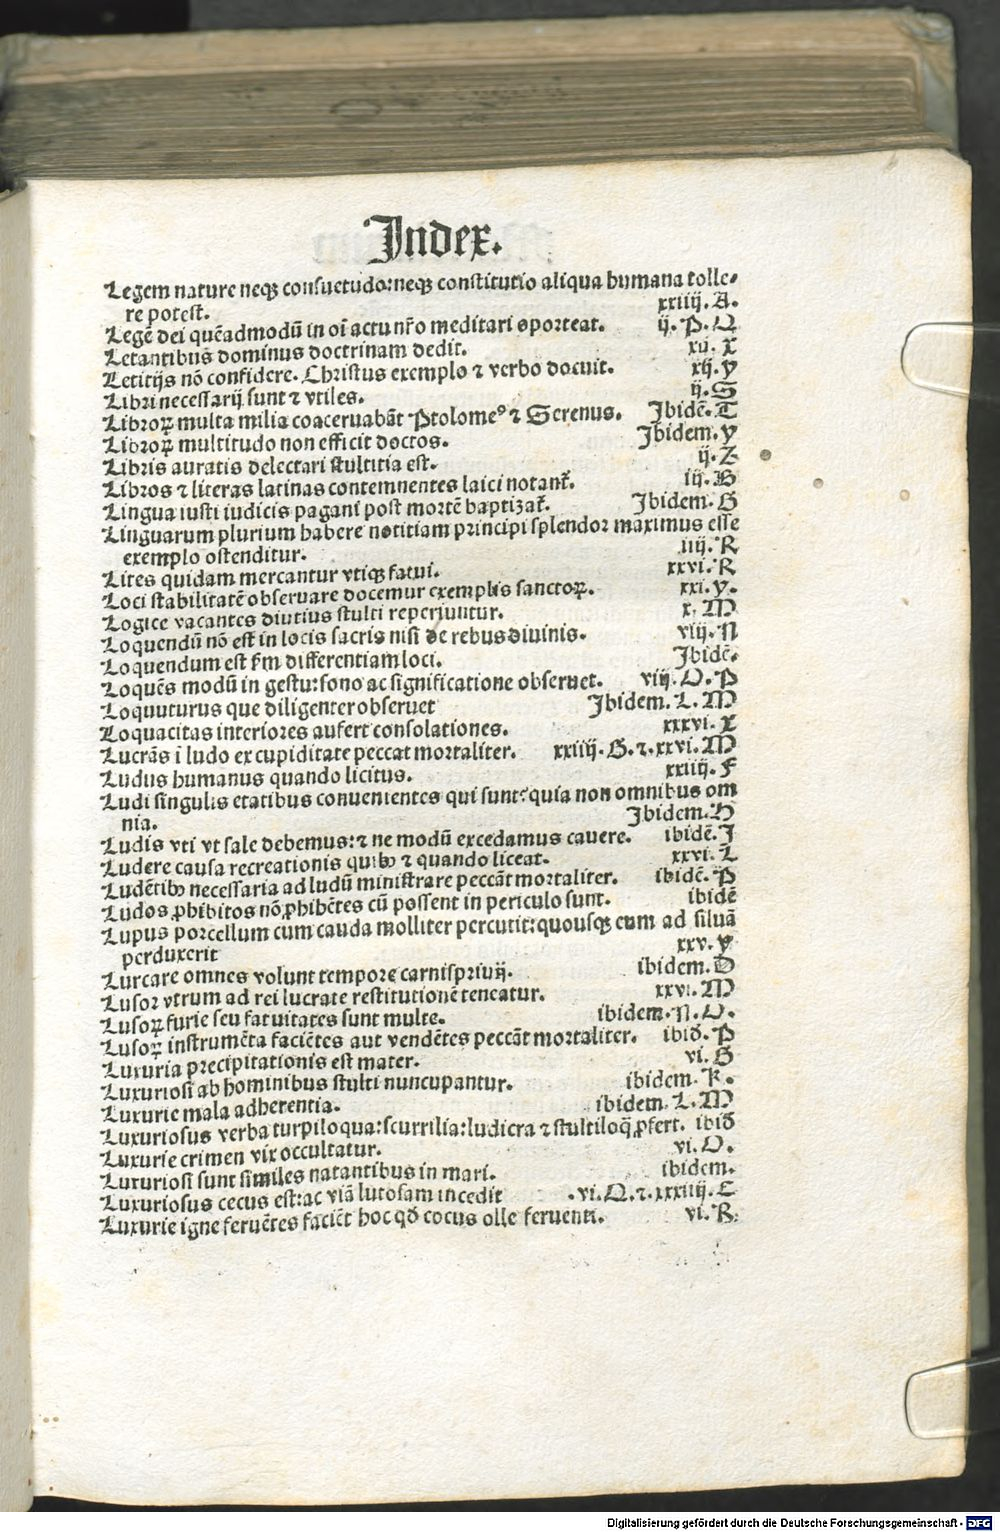 Index.
Legem nature neqꝫ consuetudo: neqꝫ constitutio aliqua humana tolle-
re potest. xxiiij. A.
Legē dei quēadmodū in oī actu nr̄o meditari oporteat. ij. P. Q
Letantibus dominus doctrinam dedit. xij. X
Letitijs nō confidere. Christus exemplo ⁊ verbo docuit. xij. y
Libri necessarij sunt ⁊ vtiles. ij. S
Libroꝝ multa milia coaceruabāt Ptolomeꝰ ⁊ Serenus. Ibidē. T
Libroꝝ multitudo non efficit doctos. Ibidem. y
Libris auratis delectari stultitia est. ij. Z
Libros ⁊ literas latinas contemnentes laici notant̄. iij. B
Lingua iusti iudicis pagani post mortē baptizat̄. Ibidem. G
Linguarum plurium habere notitiam principi splendor maximus esse
exemplo ostenditur. iiij. R
Lites quidam mercantur vtiqꝫ fatui. xxvi. R
Loci stabilitatē obseruare docemur exemplis sanctoꝝ. xxi. y.
Logice vacantes diutius stulti reperiuntur. x. M
Loquendū nō est in locis sacris nisi de rebus diuinis. viij. N
Loquendum est ẜm differentiam loci. Ibidē.
Loquēs modū in gestu: sono ac significatione obseruet. viij. O. P
Loquuturus que diligenter obseruet Ibidem. L. M
Loquacitas interiores aufert consolationes. xxxvi. X
Lucrās ī ludo ex cupiditate peccat mortaliter. xxiiij. G. ⁊. xxvi. M
Ludus humanus quando licitus. xxiiij. F
Ludi singulis etatibus conuenientes qui sunt: quia non omnibus om
nia. Ibidem. H
Ludis vti vt sale debemus: ⁊ ne modū excedamus cauere. ibidē. I
Ludere causa recreationis quibꝫ ⁊ quando liceat. xxvi. L
Ludētibꝫ necessaria ad ludū ministrare peccāt mortaliter. ibidē. P
Ludos ꝓhibitos nō ꝓhibētes cū possent in periculo sunt. ibidē
Lupus porcellum cum cauda molliter percutit: quousqꝫ eum ad siluā
perduxerit xxv. y
Lurcare omnes volunt tempore carnispriuij. ibidem. D
Lusor vtrum ad rei lucrate restitutionē teneatur. xxvi. M
Lusoꝝ furie seu fatuitates sunt multe. ibidem. N. O.
Lusoꝝ instrumēta faciētes aut vendētes peccāt mortaliter. ibid̄. P
Luxuria precipitationis est mater. vi. G
Luxuriosi ab hominibus stulti nuncupantur. ibidem. K.
Luxurie mala adherentia. ibidem. L. M
Luxuriosus verba turpiloqua: scurrilia: ludicra ⁊ stultiloq̄ ꝓfert. ibid̄
Luxurie crimen vix occultatur. vi. O.
Luxuriosi sunt similes natantibus in mari. ibidem.
Luxuriosus cecus est: ac viā lutosam incedit . vi. Q. ⁊. xxxiiij. C
Luxurie igne feruētes faciēt hoc qd̄ cocus olle feruenti. vi. R.
Digitalisierung gefördert durch die Deutsche Forschungsgemeinschaft - DFG